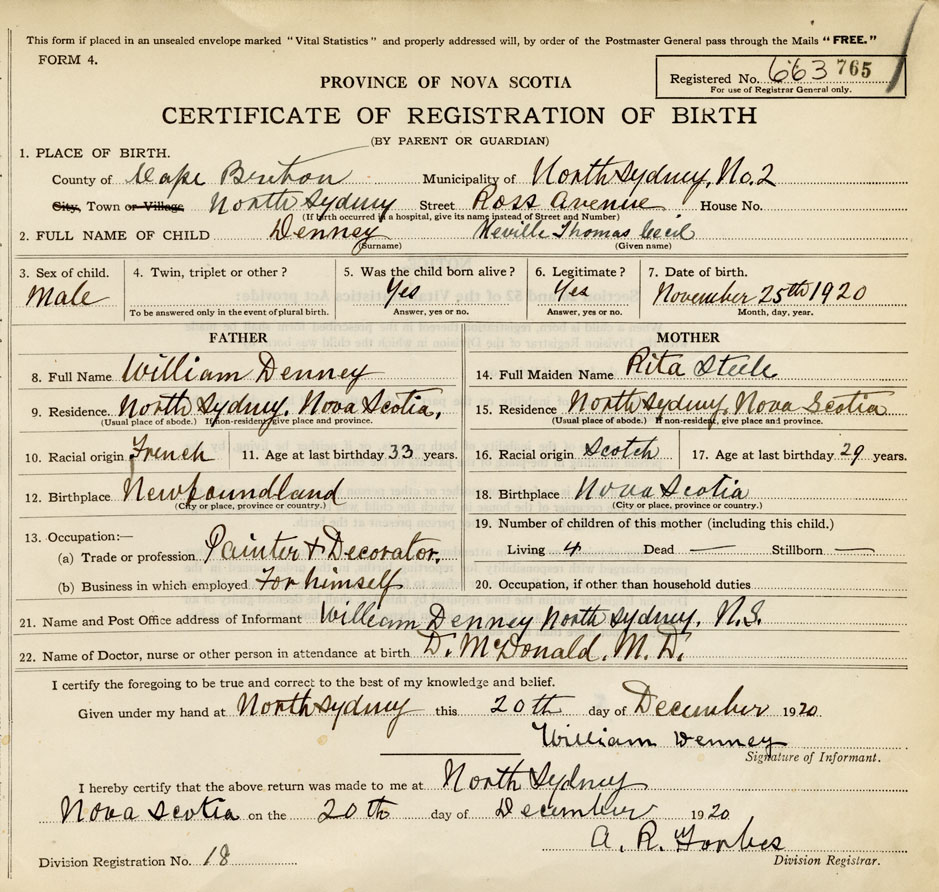 This form if placed in an unsealed envelope marked "Vital Statistics" and properly addressed will, by order of the Postmaster General pass through the Mails "FREE."
FORM 4.
Registered No. 663 765
For use of Registrar General only.
PROVINCE OF NOVA SCOTIA
CERTIFICATE OF REGISTRATION OF BIRTH
(BY PARENT OR GUARDIAN)
1. PLACE OF BIRTH.
County of Cape Breton Municipality of North Sydney, No. 2
City, Town or Village North Sydney Street Ross Avenue House No.
(If birth occurred in a hospital, give its name instead of Street and Number)
2. FULL NAME OF CHILD Denney Neville Thomas Cecil
(Surname) (Given name)
3. Sex of child. 4. Twin, triplet or other? 5. Was the child born alive? 6. Legitimate? 7. Date of birth.
Male Yes Yes November 25th 1920
To be answered only in the event of plural birth. Answer, yes or no. Answer, yes or no. Month, day, year.
FATHER MOTHER
8. Full Name William Denney 14. Full Maiden Name Rita Steele
9. Residence North Sydney, Nova Scotia, 15. Residence North Sydney, Nova Scotia
(Usual place of abode.) If non-resident, give place and province. (Usual place of abode.) If non-resident, give place and province.
10. Racial origin French 11. Age at last birthday 33 years. 16. Racial origin Scotch 17. Age at last birthday 29 years.
12. Birthplace Newfoundland 18. Birthplace Nova Scotia
(City or place, province or country.) (City or place, province or country.)
13. Occupation:— 19. Number of children of this mother (including this child.)
(a) Trade or profession Painter & Decorator. Living 4 Dead — Stillborn —
(b) Business in which employed For himself 20. Occupation, if other than household duties
21. Name and Post Office address of Informant William Denney North Sydney, N.S.
22. Name of Doctor, nurse or other person in attendance at birth D. McDonald, M.D.
I certify the foregoing to be true and correct to the best of my knowledge and belief.
Given under my hand at North Sydney this 20th day of December 1920
William Denney
Signature of Informant.
I hereby certify that the above return was made to me at North Sydney
Nova Scotia on the 20th day of December 1920
A. R. Forbes
Division Registration No. 18 Division Registrar.